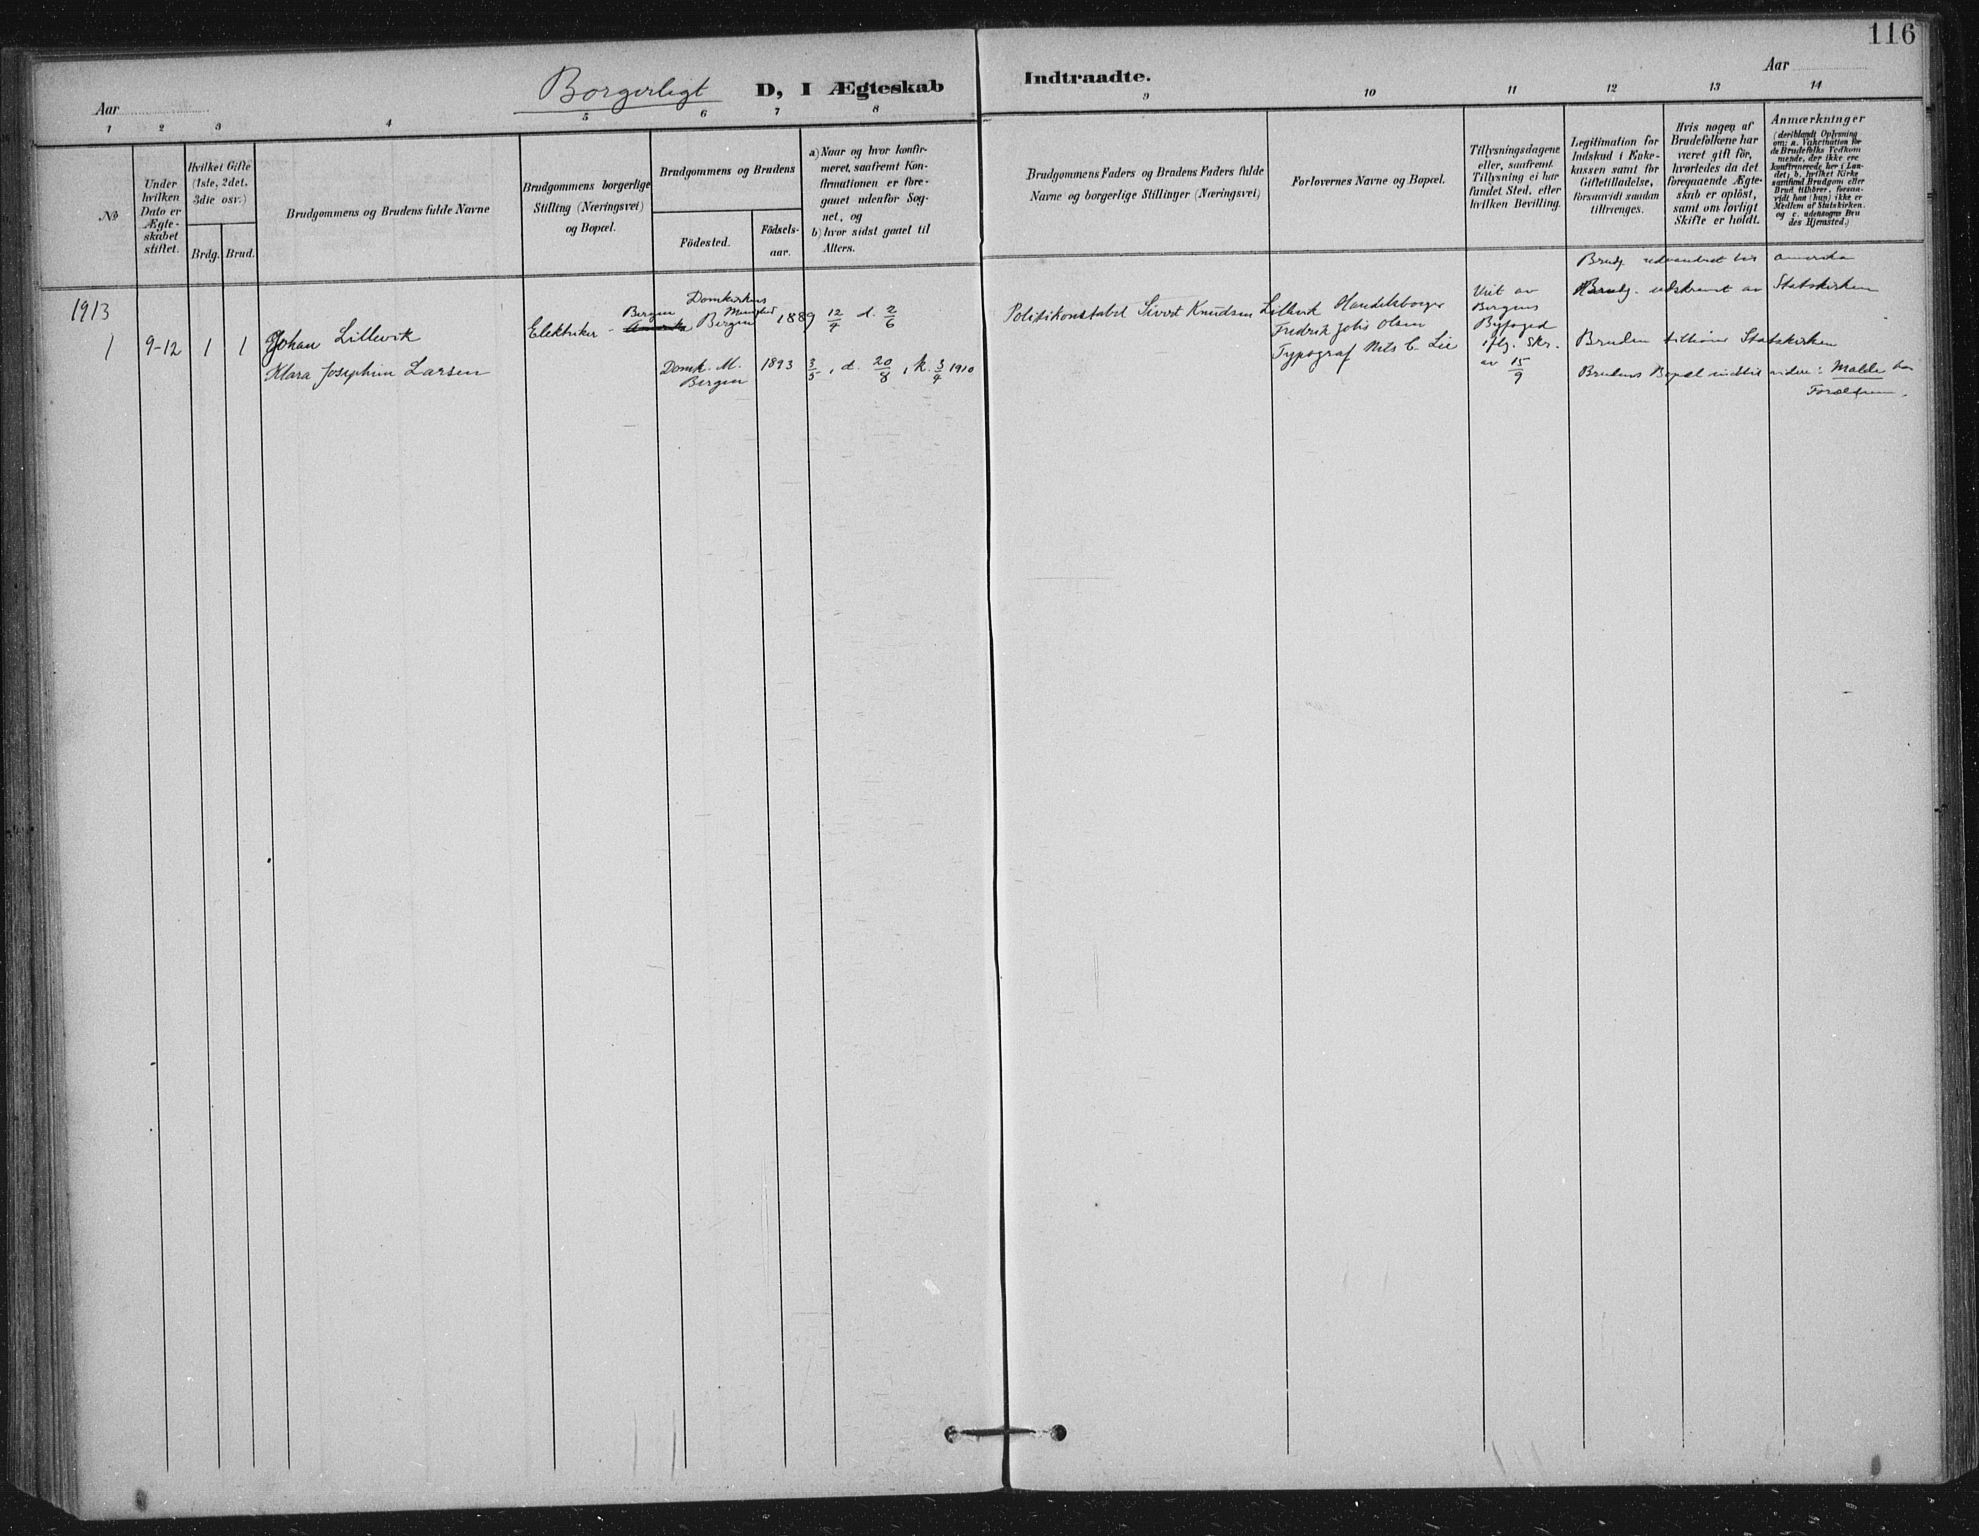 116
Borgerligt D, I Ægteskab Indtraadte.
Aar
Aar
1 2 3 4 5 6 7 8 9 10 11 12 13 14
No
Under hvilken Dato er Ægteskabet stiftet.
Hvilket Gifte (1ste, 2det, 3die osv.)
Brdg. Brud.
Brudgommens og Brudens fulde Navne
Brudgommens borgerlige Stilling (Næringsvei) og Bopæl.
Brudgommens og Brudens
Födested.
Födsels-aar.
a) Naar og hvor konfir-
meret, saafremt Kon-
firmationen er fore-
gaaet udenfor Sog-
net, og
b) hvor sidst gaaet til
Alters.
Brudgommens Faders og Brudens Faders fulde
Navne og borgerlige Stillinger (Næringsvei)
Forlovernes Navne og Bopæl.
Tillysningsdagene
eller, saafremt
Tillysning ei har
fundet Sted, efter
hvilken Bevilling.
Legitimation for
Indskud i Enke-
kassen samt for
Giftetilladelse,
forsaavidt saadan
tiltrænges.
Hvis nogen af
Brudefolkene har
været gift för,
hvorledes da det
foregaaende Ægte-
skab er oplöst,
samt om lovligt
Skifte er holdt.
Anmærkninger
(deriblandt Oplysning
om: a. Vakcination for
de Brudefolks Vedkom
mende, der ikke ere
konfirmerede her i Lan-
det; b. hvilket Kirke
samfund Brudgom eller
Brud tilhører, forsaa-
vidt han (hun) ikke er
Medlem af Statskirken.
og c. udensogns Bru
des Hjemsted.)
1913
1 9-12 1 1 Johan Lillevik
Klara Josephine Larsen
Elektriker - Bergen
Amerika
Domkirkens
Menighed
Bergen
1889 12/4 d. 2/6
Domk. M.
Bergen
1893 3/5, d. 20/8, k. 3/4 1910
Politikonstabel Sivert Knudsen Lillevik
Handelsborger
Fredrik Johs Olsen
Typograf Nils C. Lie
Viet av
Bergens
Byfoged
iflg. Skr.
av 15/9
Brudg. udvandret til Amerika
Brudg. udstraadt av Statskirken
Bruden tilhører Statskirken
Brudens Bopæl indtil videre: Malde hos
Forældrene.